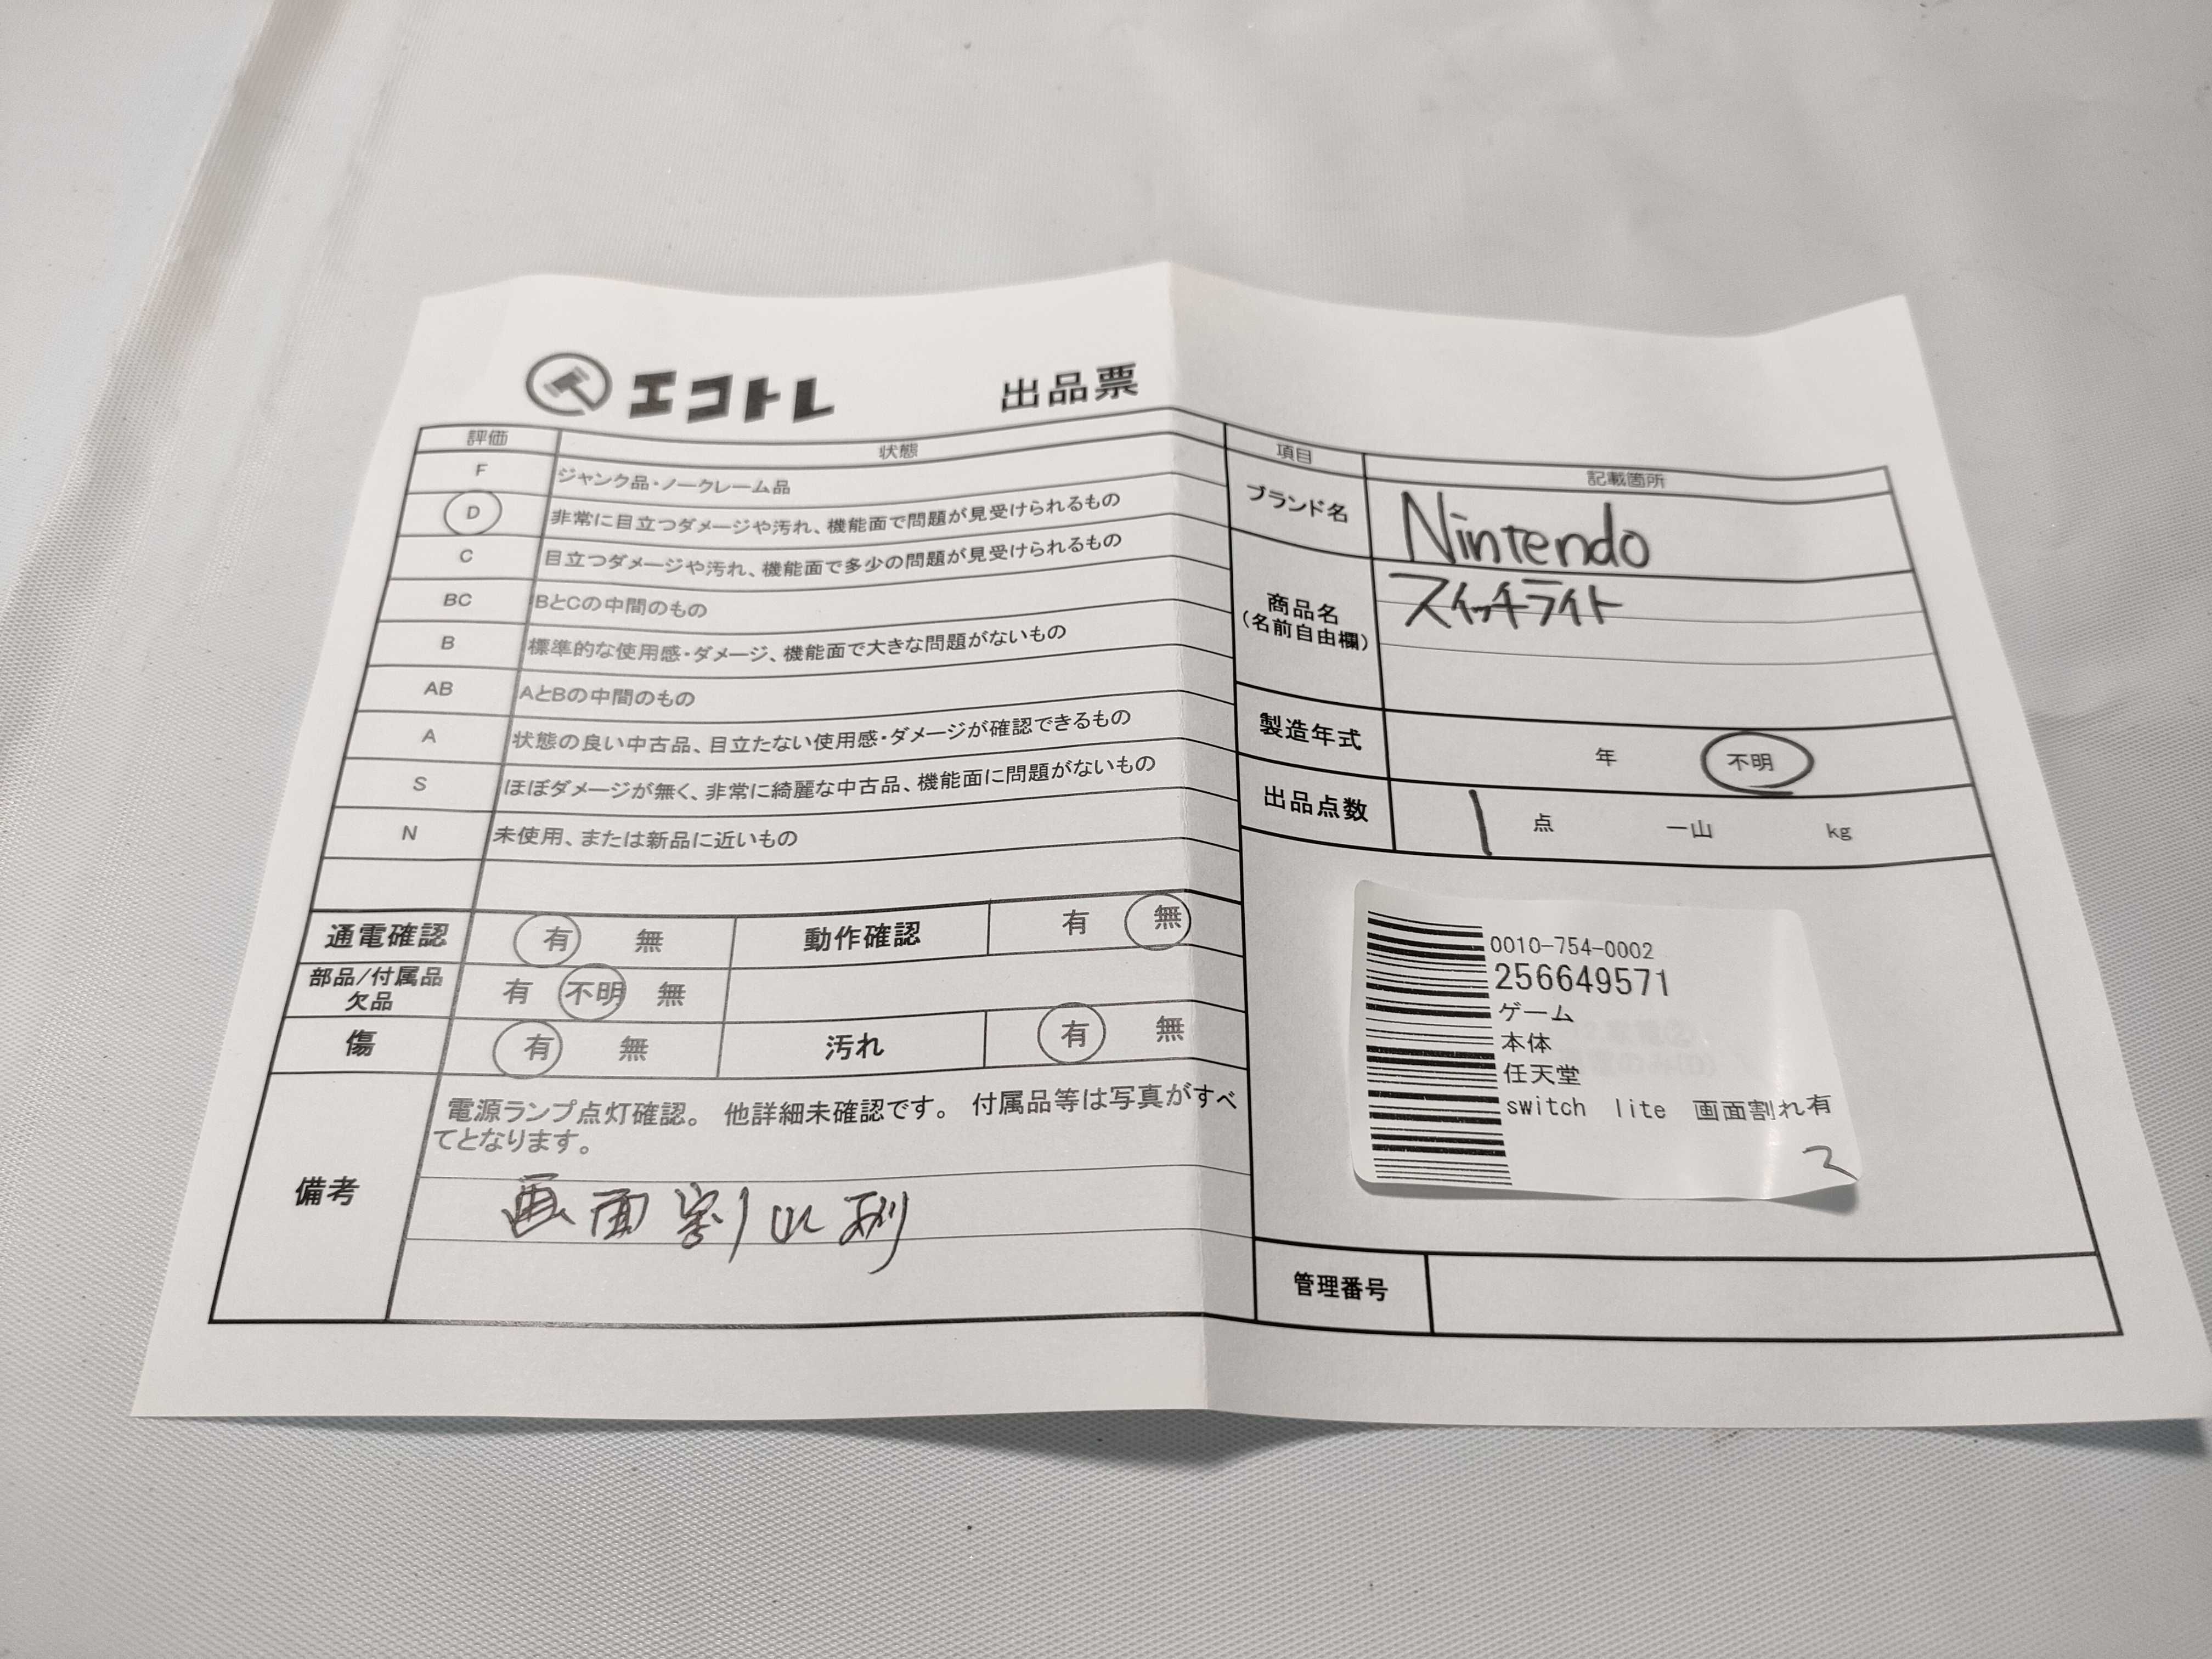 エコトレ 出品票
評価 状態
F ジャンク品・ノークレーム品
D 非常に目立つダメージや汚れ、機能面で問題が見受けられるもの
C 目立つダメージや汚れ、機能面で多少の問題が見受けられるもの
BC BとCの中間のもの
B 標準的な使用感・ダメージ、機能面で大きな問題がないもの
AB AとBの中間のもの
A 状態の良い中古品、目立たない使用感・ダメージが確認できるもの
S ほぼダメージが無く、非常に綺麗な中古品、機能面に問題がないもの
N 未使用、または新品に近いもの
通電確認 有 無 動作確認 有 無
部品/付属品
欠品 有 不明 無
傷 有 無 汚れ 有 無
備考
電源ランプ点灯確認。 他詳細未確認です。 付属品等は写真がすべ
てとなります。
画面割れ有り
項目 記載箇所
ブランド名 Nintendo
商品名
(名前自由欄)
スイッチライト
製造年式 年 不明
出品点数 1 点 一山 kg
0010-754-0002
256649571
ゲーム
本体
任天堂
switch lite 画面割れ有
2
管理番号